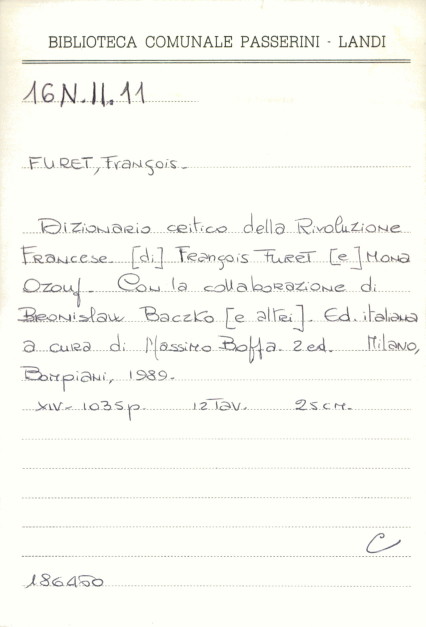 BIBLIOTECA COMUNALE PASSERINI - LANDI
16 N. II. 11
FURET, François.
Dizionario critico della Rivoluzione
Francese. [di] François Furet [e] Mona
Ozouf. Con la collaborazione di
Bronislaw Baczko [e altri]. Ed. italiana
a cura di Massimo Boffa. 2 ed. Milano,
Bompiani, 1989.
XIV- 1035 p. 12 Tav. 25 cm.
C
186450